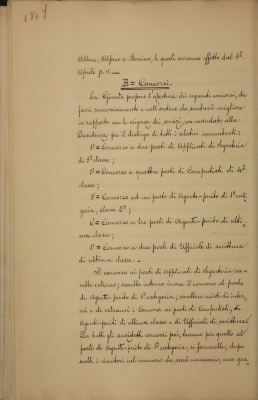 182
Albino, Alfano e Bonino, le quali avranno effetto dal 1º
Aprile p. v.
B = Concorsi.
La Giunta propone l'apertura dei seguenti concorsi, da
farsi successivamente e nell'ordine che sembrerà migliore
in rapporto con le esigenze dei servizi, con mandato alla
Presidenza per il disbrigo di tutti i relativi incombenti:
1º = Concorso a due posti di Applicati di Segreteria
di 3ª classe;
2º = Concorso a quattro posti di Computisti di 4ª
classe;
3º = Concorso ad un posto di Agente-perito di 1ª cate
goria, classe 2ª;
4º = Concorso a tre posti di Agente-perito di ulti
ma classe;
5º = Concorso a due posti di Ufficiali di scrittura
di ultima classe.
Il concorso ai posti di Applicati di Segreteria sa
rebbe esterno; sarebbe interno invece il concorso al posto
di Agente-perito di 1ª categoria; sarebbero misti di inter
ni e di estranei i concorsi ai posti di Computisti, di
Agenti-periti di ultima classe e di Ufficiali di scrittura.
Per tutti gli anzidetti concorsi poi, tranne per quello al
posto di Agente-perito di 1ª categoria, si formerebbe, do
po i vincitori nel numero che sarà necessario, una gra